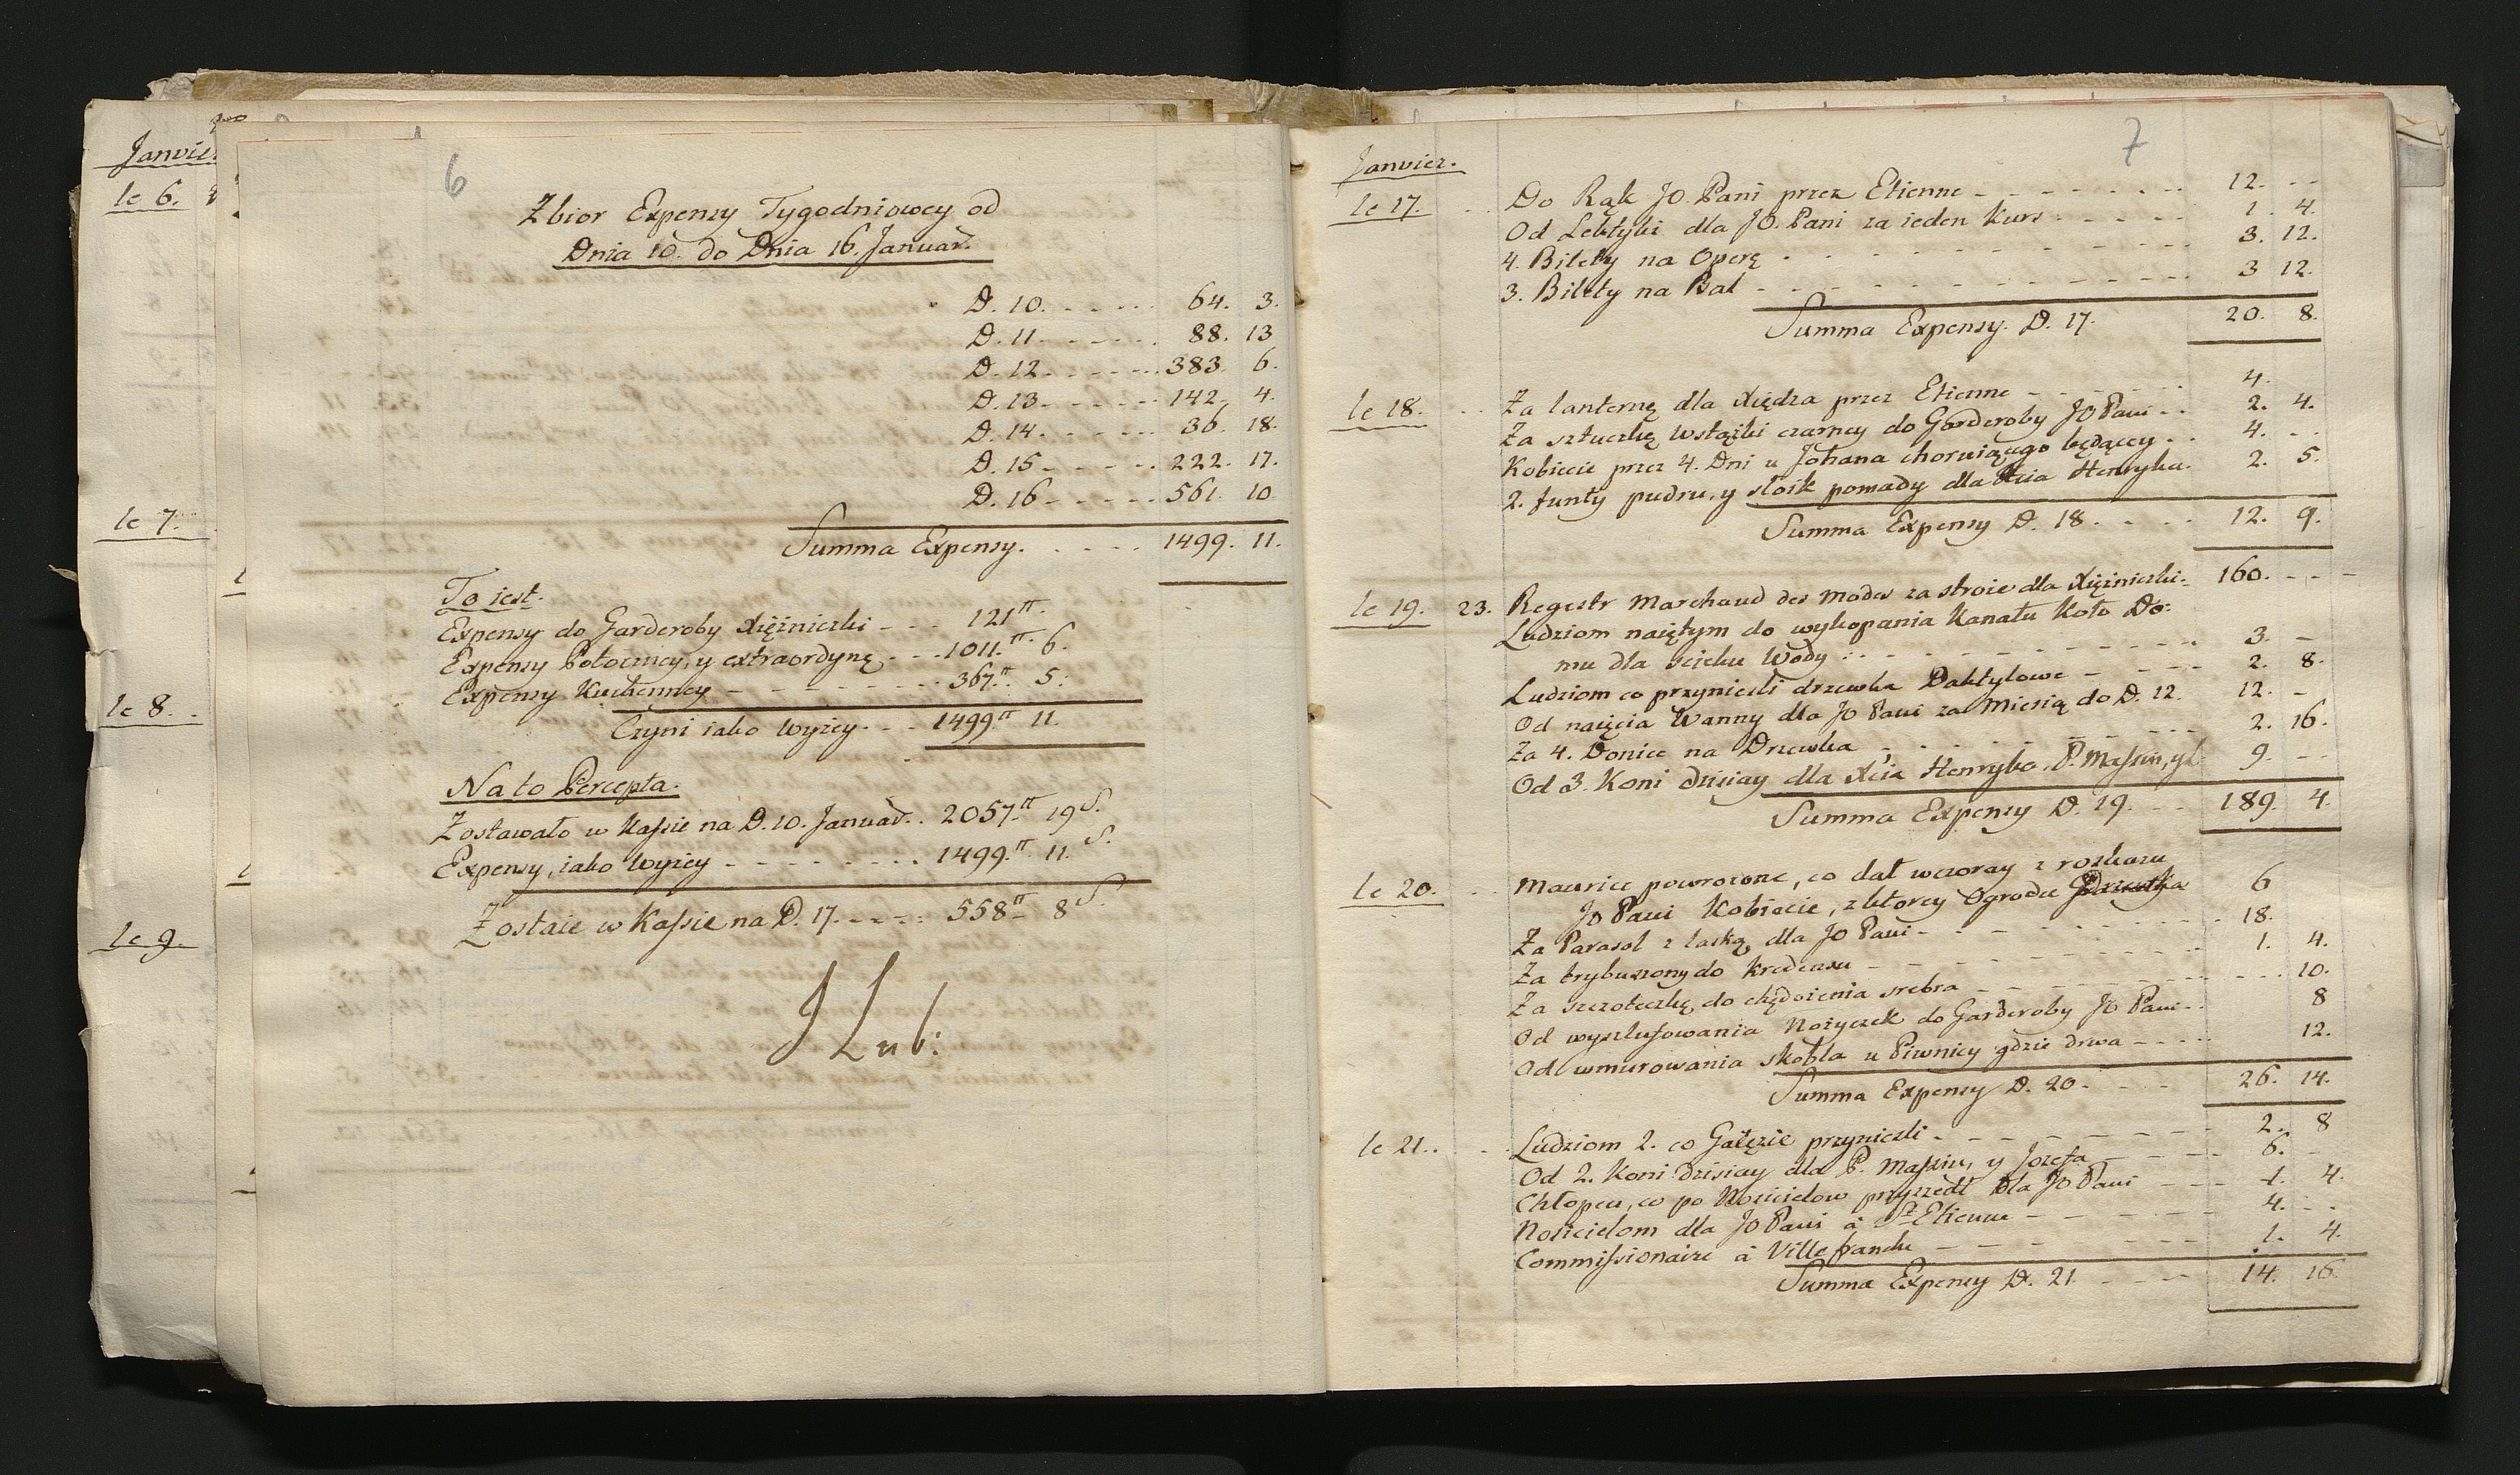 Janvier
le 6.
le 7.
le 8.
le 9.
6
Zbior Expensy Tygodniowey od
Dnia 10. do Dnia 16. Januar.
D. 10. 64. 3.
D. 11. 88. 13
D. 12. 383. 6.
D. 13. 142. 4.
D. 14. 36. 18.
D. 15. 222. 17.
D. 16. 561. 10
Summa Expensy. 1499. 11.
To iest.
Expensy do Garderoby Xiężniczki 121tt.
Expensy Potoczney, y extraordyną 1011.tt. 6.
Expensy Kuchenney 367.tt. 5.
Czyni iako wyżey 1499tt 11.
Na to Percepta.
Zostawało w Kassie na D. 10. Januar. 2057.tt 19 S.
Expensy, iako wyżey 1499.tt. 11. S.
Zostaie w Kassie na D. 17. 558tt 8 S.
J Lub:
7
Janvier.
le 17. Do Rąk JO. Pani przez Etienne 12.
Od Lektyki dla JO. Pani za ieden Kurs 1. 4.
4. Bilety na Operę 3. 12.
3. Bilety na Bal 3 12.
Summa Expensy. D. 17. 20. 8.
le 18. Za lanternę dla Xiędza przez Etienne 4.
Za sztuczkę wstążki czarney do Garderoby JO Pani 2. 4.
Kobiecie przez 4. Dni u Johana choruiącego będącey 4.
2. funty pudru, y słoik pomady dla Xcia Henryka. 2. 5.
Summa Expensy D. 18. 12. 9.
le 19. 23. Regestr Marchand des Modes za stroie dla Xiężniczki 160.
Ludziom naiętym do wykopania Kanału Koło Do:
mu dla scieku Wody 3.
Ludziom co przyniesli drzewka Daktylowe 2. 8.
Od naięcia Wanny dla JO Pani za Miesią do D. 12. 12.
Za 4. Donice na Drzewka 2. 16.
Od 3. Koni dzisiay dla Xcia Henryka. P. Massin, y 9.
Summa Expensy D. 19. 189. 4.
le 20. Maurice powrocone, co dał wczoray z rozkazu
JO Pani Kobiecie, z ktorey Ogrodu 6
Za Parasol z laską dla JO Pani 18.
Za trybuszony do Kredensu 1. 4.
Za szczoteczkę do chędożenia srebra 10.
Od wyszlufowania Nożyczek do Garderoby JO Pani 8
Od wmurowania skobla u Piwnicy gdzie drwa 12.
Summa Expensy D. 20. 26. 14.
le 21. Ludziom 2. co Gałęzie przyniesli 2. 8
Od 2. Koni dzisiay dla P. Massin, y Jozefa 6.
Chłopcu, co po Nosicielow przyszedł dla JO Pani 1. 4.
Nosicielom dla JO Pani à St. Etienne 4.
Commissionaire à Villefranche 1. 4.
Summa Expensy D. 21 14. 16.